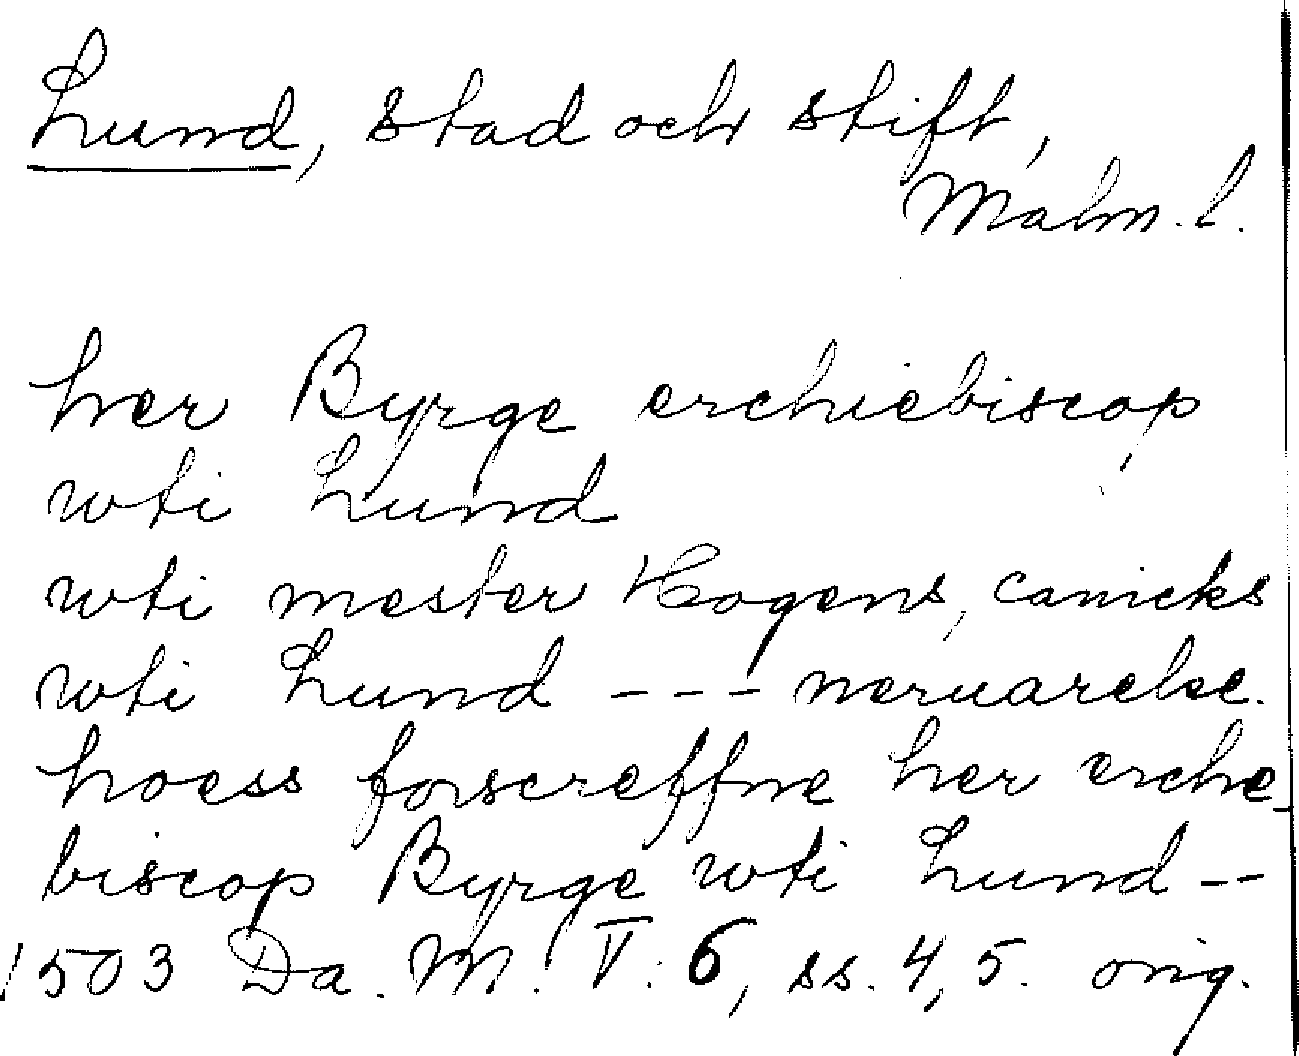 Lund, stad och stift,
Malm. l.
her Byrge erchiebiscop
wti Lund
wti mester Hogens, canicks
wti Lund --- neruarelse.
hoess forscreffne her erche
biscop Byrge wti Lund --
1503 Da. M. V. 6, ss. 4, 5. orig.